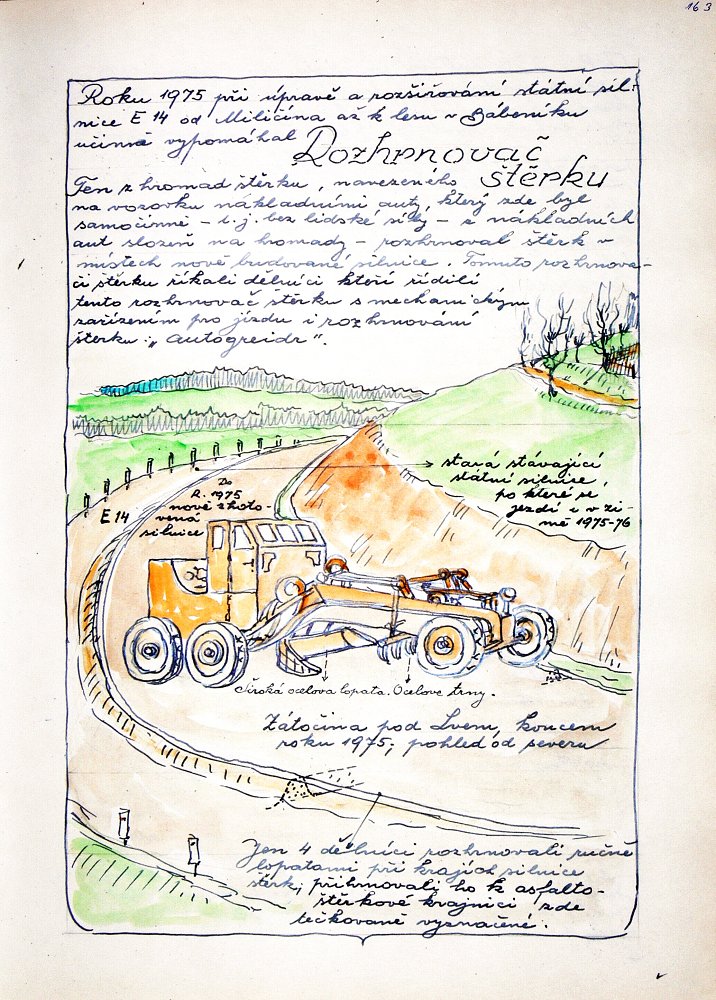 163
Roku 1975 při úpravě a rozšiřování státní sil-
nice E 14 od Miličína až k lesu v Bábeníku
účinně vypomáhal Rozhrnovač
štěrku
Ten z hromad štěrku, navezeného
na vozovku nákladními auty, který zde byl
samočinně - t.j. bez lidské síly - z nákladních
aut složen na hromady - rozhrnoval štěrk v
místech nově budované silnice. Tomuto rozhrnova-
či štěrku říkali dělníci kteří řídili
tento rozhrnovač štěrku s mechanickým
zařízením pro jízdu i rozhrnování
štěrku: „Autogreidr".
stará stávající
státní silnice,
po které se
jezdí i v zi-
mě 1975-76
Do
R. 1975
nově zhoto-
vená
silnice
E 14
Široká ocelova lopata. Ocelove trny.
Zátočina pod Lvem, koncem
roku 1975, pohled od severu
Jen 4 dělníci rozhrnovali ručně
lopatami při krajích silnice
štěrk, přihrnovali ho k asfalto-
štěrkové krajnici zde
tečkovaně vyznačené.